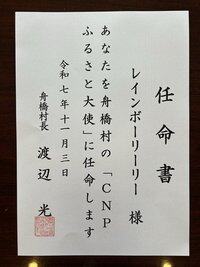 任命書
レインボーリーリー 様
あなたを舟橋村の「CNP
ふるさと大使」に任命します
令和七年十一月三日
舟橋村長 渡辺 光